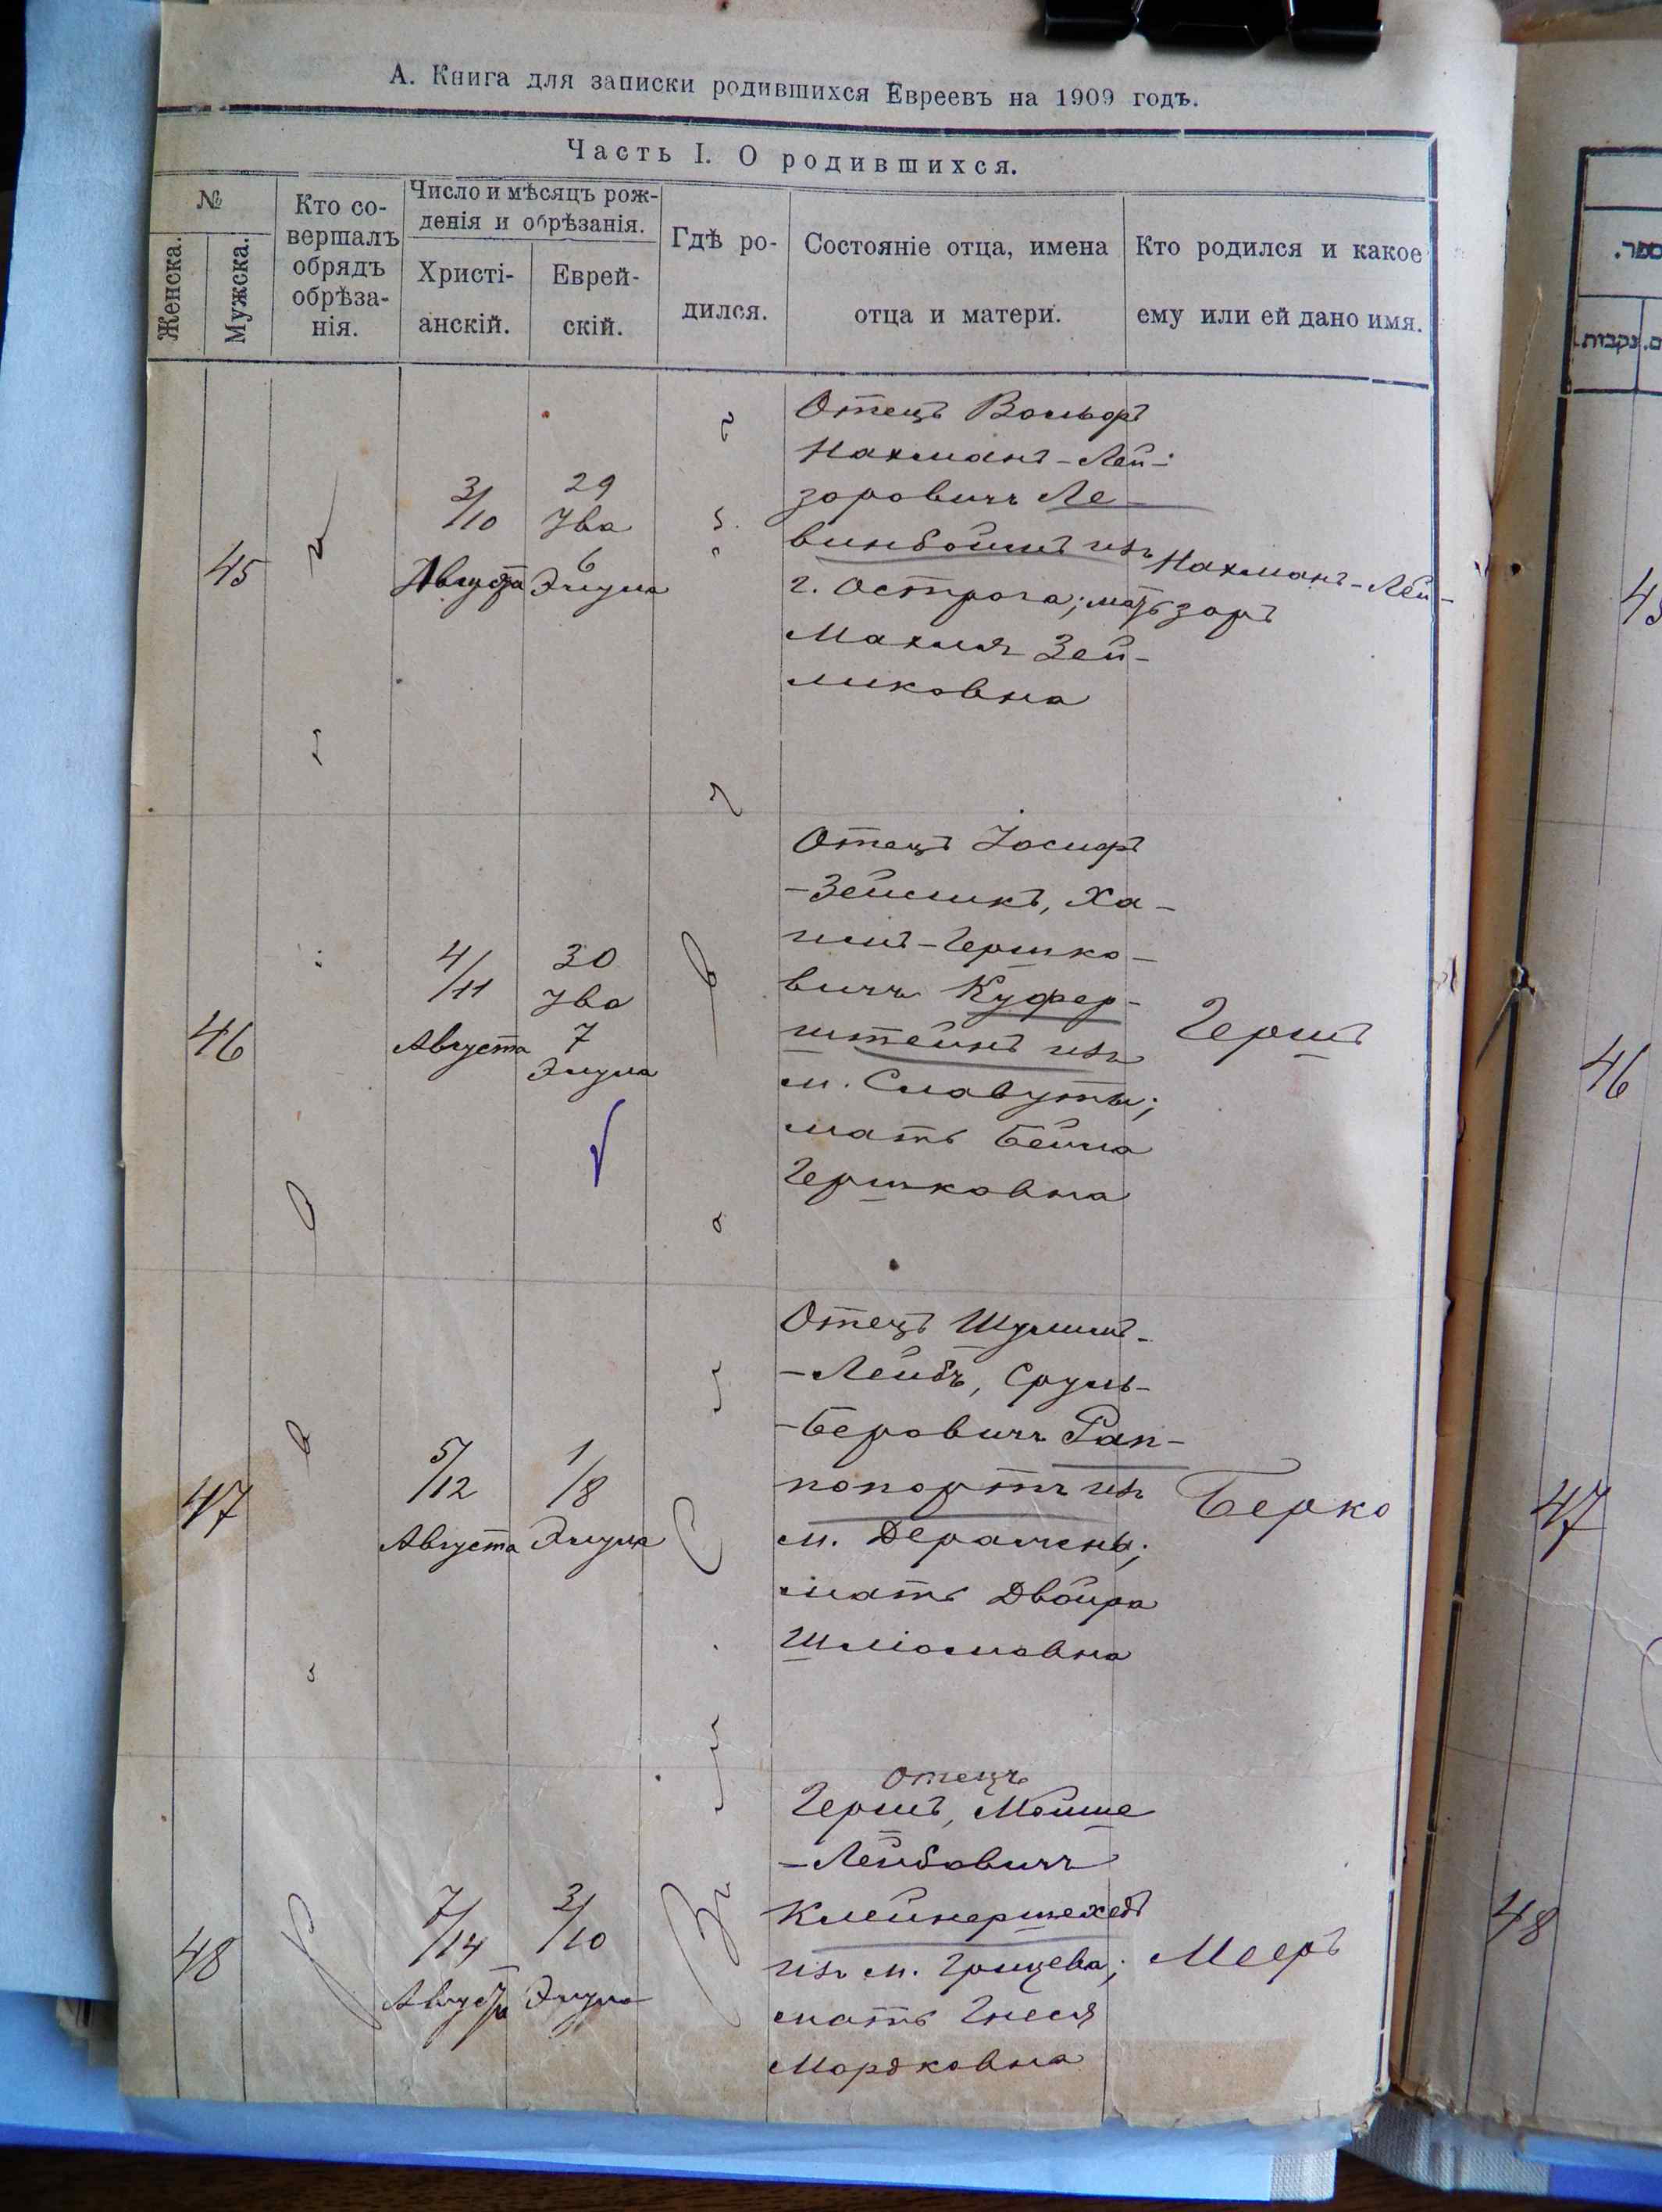 А. Книга для записки родившихся Евреевъ на 1909 годъ.
Часть I. О родившихся.
№
Женска.
Мужска.
Кто со-
вершалъ
обрядъ
обрѣза-
нія.
Число и мѣсяцъ рож-
денія и обрѣзанія.
Христі-
анскій.
Еврей-
скій.
Гдѣ ро-
дился.
Состояніе отца, имена
отца и матери.
Кто родился и какое
ему или ей дано имя.
45
3/10
Августа
29
Ува
6
Элула
Отецъ Вольфъ
Нахманъ-Лей-
зоровичъ Ле-
винбоимъ изъ
г. Острога; мать
Махля Зей-
ликовна
Нахманъ-Лей-
зоръ
46
4/11
Августа
30
Ува
7
Элула
Отецъ Іосифъ
-Зейликъ, Ха-
имъ-Гершко-
вичъ Куфер-
штейнъ изъ
м. Славуты;
мать Бейла
Гершковна
Гершъ
47
5/12
Августа
1/8
Элула
Отецъ Шулимъ-
-Лейбъ, Сруль-
-Беровичъ Рап-
попортъ изъ
м. Деражны;
мать Двойра
Шліомовна
Берко
48
7/14
Августа
3/10
Элула
Отецъ
Гершъ, Мойше
-Лейбовичъ
Клейнершехетъ
изъ м. Грицева;
мать Гнеся
Мордковна
Мееръ
נקבות.
46
47
48